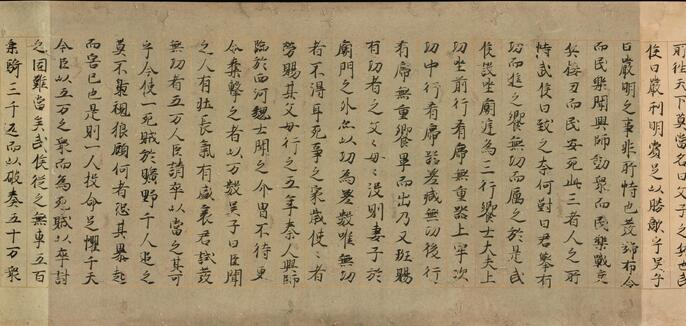 所往天下莫當名曰父子之兵也武
侯曰嚴刑明賞足以勝敵乎吳子
曰嚴明之事非所恃也發號布令
而民樂聞興師動衆而民樂戰交
兵接刃而民安死此三者人之所
恃武侯曰致之奈何對曰君舉有
功而進之饗無功而厲之於是武
侯設坐廟庭為三行饗士大夫上
功坐前行肴席無重器上牢次
功中行肴席器差減無功後行
肴席無重饗畢而出乃又班賜
有功者之父〻母〻沒則妻子於
廟門之外亦以功為差數唯無功
者不得耳死事之家歲使〻者
勞賜其父母行之五年秦人興師
臨於西河魏士聞之介冑不待吏
令奮擊之者以万數吳子曰臣聞
之人有短長氣有盛衰君試發
無功者五万人臣請率以當之其可
乎今使一死賊於曠野千人追之
莫不梟視狼顧何者恐其暴起
而害己也是則一人投命足懼千夫
今臣以五万之衆而為死賊以率討
之固難當矣武侯從之兼車五百
乘騎三千疋而以破秦五十万衆